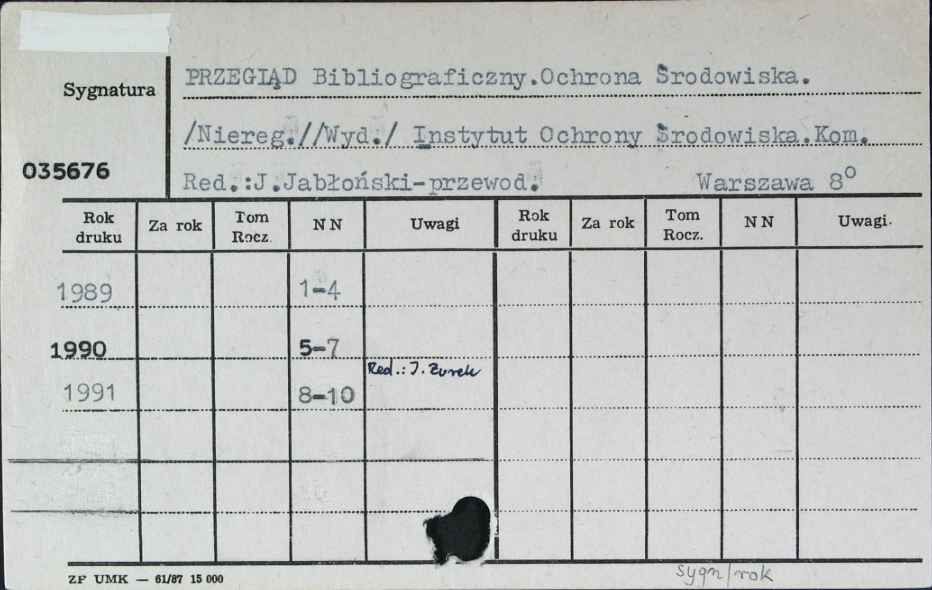 Sygnatura
035676
PRZEGIĄD Bibliograficzny.Ochrona Środowiska.
/Niereg.//Wyd./ Instytut Ochrony Środowiska.Kom.
Red.:J.Jabłoński-przewod. Warszawa 8°
Rok druku Za rok Tom Rocz. NN Uwagi Rok druku Za rok Tom Rocz. NN Uwagi.
1989 1-4
1990 5-7
Red.: J. Żurek
1991 8-10
ZP UMK — 61/87 15 000
sygn/rok